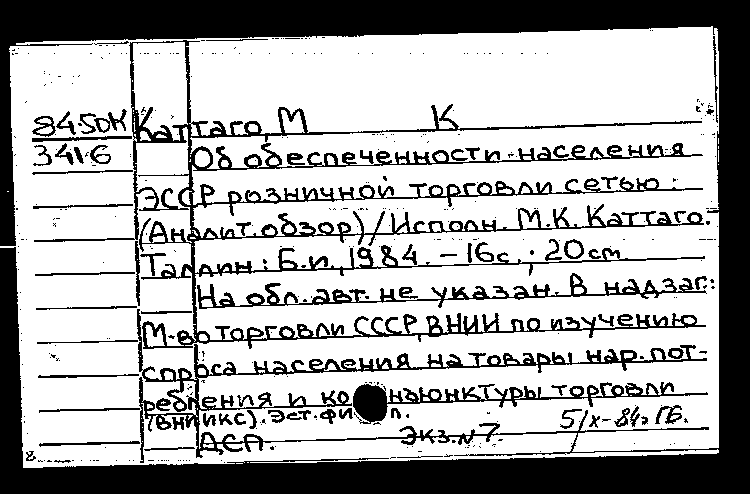 84-5ДК Каттаго, М К
341.6 Об обеспеченности населения
ЭССР розничной торговли сетью :
(Аналит. обзор) / Исполн. М.К. Каттаго. -
Таллин : Б.и., 1984. - 16с. ; 20 cm
На обл. авт. не указан. В надзаг.:
М-во торговли СССР, ВНИИ по изучению
спроса населения на товары нар. пот-
ребления и конъюнктуры торговли
(ВНИИКС). Эст. фил.
5/X-84г ГБ.
ДСП. Экз. N 7.
8